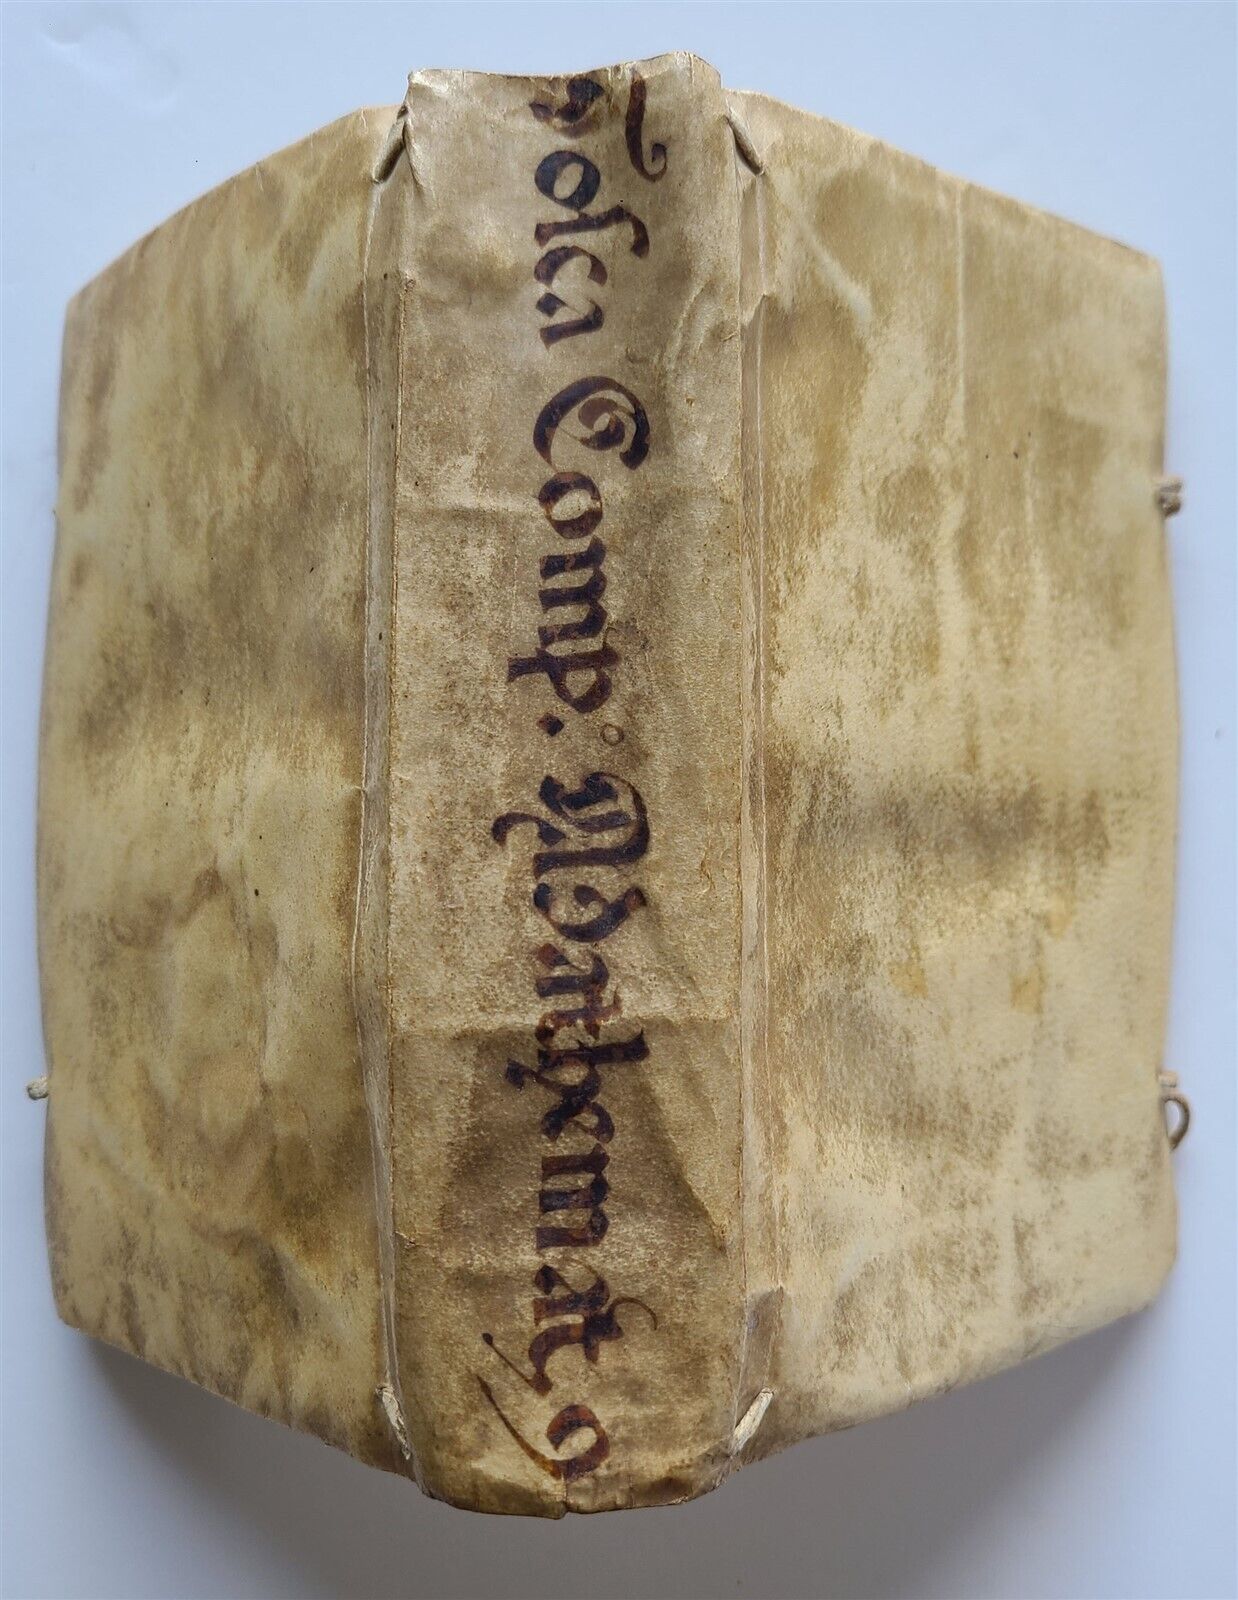 Tosca Comp: Mathematico